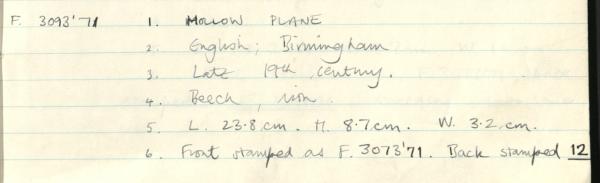 F. 3093'71 1. HOLLOW PLANE
2. English; Birmingham
3. Late 19th century.
4. Beech, iron.
5. L. 23.8 cm. H. 8.7 cm. W. 3.2 cm.
6. Front stamped as F. 3073'71. Back stamped 12